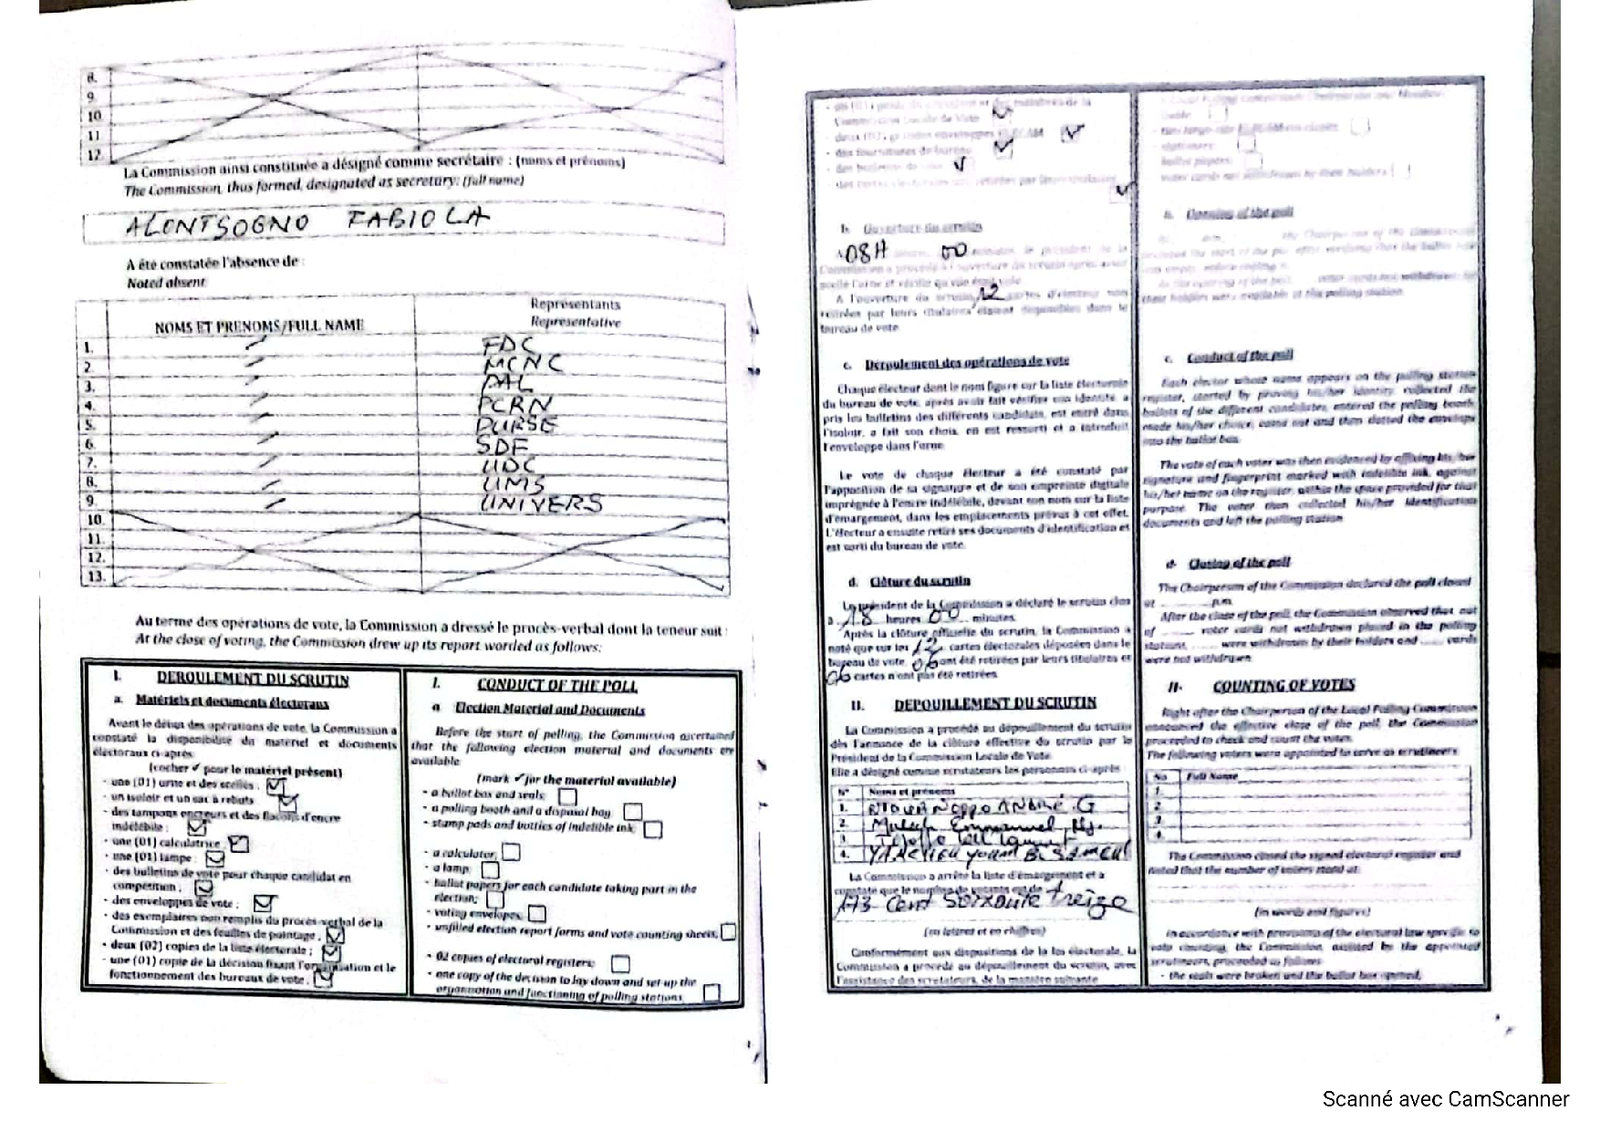 8.
9.
10.
11
12.
La Commission ainsi constituée a désigné comme secrétaire : (noms et prénoms)
The Commission, thus formed, designated as secretary: (full name)
ALONTSOGNO FABIOLA
A été constatée l'absence de :
Noted absent
NOMS ET PRENOMS/FULL NAME
Représentants
Representative
1. FDC
2. MCNC
3. PAL
4. PCRN
5. PURSE
6. SDF
7. UDC
8. UMS
9. UNIVERS
10.
11.
12.
13.
Au terme des opérations de vote, la Commission a dressé le procès-verbal dont la teneur suit :
At the close of voting, the Commission drew up its report worded as follows:
I. DEROULEMENT DU SCRUTIN
a. Matériels et documents électoraux
Avant le début des opérations de vote, la Commission a
constaté la disponibilité du matériel et documents
électoraux ci-après
(cocher ✓ pour le matériel présent)
- une (01) urne et des scellés ;
- un isoloir et un sac à rebuts
- des tampons encreurs et des flacons d'encre
indélébile ;
- une (01) calculatrice ;
- une (01) lampe ;
- des bulletins de vote pour chaque candidat en
compétition ;
- des enveloppes de vote ;
- des exemplaires non remplis du procès-verbal de la
Commission et des feuilles de pointage ;
- deux (02) copies de la liste électorale ;
- une (01) copie de la décision fixant l'organisation et le
fonctionnement des bureaux de vote.
I. CONDUCT OF THE POLL
a Election Material and Documents
Before the start of polling, the Commission ascertained
that the following election material and documents are
available
(mark ✓ for the material available)
- a ballot box and seals;
- a polling booth and a disposal bag
- stamp pads and bottles of indelible ink;
- a calculator;
- a lamp;
- ballot papers for each candidate taking part in the
election;
- voting envelopes;
- unfilled election report forms and vote counting sheets;
- 02 copies of electoral registers;
- one copy of the decision to lay down and set up the
organisation and functioning of polling stations.
Commission Locale de Vote
- des fournitures de bureau
b. Ouverture du scrutin
08H 00 minutes, le président de la
Commission a procédé à l'ouverture du scrutin après avoir
A l'ouverture du scrutin, 12 cartes d'électeur non
retirées par leurs titulaires étaient disponibles dans le
bureau de vote.
c. Déroulement des opérations de vote
Chaque électeur dont le nom figure sur la liste électorale
du bureau de vote, après avoir fait vérifier son identité, a
pris les bulletins des différents candidats, est entré dans
l'isoloir, a fait son choix, en est ressorti et a introduit
l'enveloppe dans l'urne.
Le vote de chaque électeur a été constaté par
l'apposition de sa signature et de son empreinte digitale
imprégnée à l'encre indélébile, devant son nom sur la liste
d'émargement, dans les emplacements prévus à cet effet.
L'électeur a ensuite retiré ses documents d'identification et
est sorti du bureau de vote.
d. Clôture du scrutin
Le président de la Commission a déclaré le scrutin clos
à 18 heures 00 minutes.
Après la clôture officielle du scrutin, la Commission a
noté que sur les 12 cartes électorales déposées dans le
bureau de vote, 06 ont été retirées par leurs titulaires et
06 cartes n'ont pas été retirées.
II. DEPOUILLEMENT DU SCRUTIN
La Commission a procédé au dépouillement du scrutin
dès l'annonce de la clôture effective du scrutin par le
Président de la Commission Locale de Vote.
Elle a désigné comme scrutateurs les personnes ci-après :
N° Noms et prénoms
1. ANDRÉ G
2. Emmanuel
3.
4.
La Commission a arrêté la liste d'émargement et a
constaté que le nombre de votants est de
173 Cent Soixante treize
(en lettres et en chiffres)
Conformément aux dispositions de la loi électorale, la
Commission a procédé au dépouillement du scrutin, avec
l'assistance des scrutateurs, de la manière suivante
stationery;
ballot papers;
voter cards not withdrawn by their holders
b. Opening of the poll
their holders were available at the polling station.
c. Conduct of the poll
Each elector whose name appears on the polling station
register, started by proving his/her identity, collected the
ballots of the different candidates, entered the polling booth,
made his/her choice, came out and then slotted the envelope
into the ballot box.
The vote of each voter was then evidenced by affixing his/her
signature and fingerprint marked with indelible ink, against
his/her name on the register, within the space provided for that
purpose. The voter then collected his/her identification
documents and left the polling station.
d- Closing of the poll
The Chairperson of the Commission declared the poll closed
at ........ p.m.
After the close of the poll, the Commission observed that out
of ...... voter cards not withdrawn placed in the polling
stations, ...... were withdrawn by their holders and ...... cards
were not withdrawn.
II- COUNTING OF VOTES
Right after the Chairperson of the Local Polling Commission
announced the effective close of the poll, the Commission
proceeded to check and count the votes.
The following voters were appointed to serve as scrutineers
No Full Name
1.
2.
3.
4.
The Commission closed the signed electoral register and
noted that the number of voters stand at:
(in words and figures)
In accordance with provisions of the electoral law specific to
vote counting, the Commission, assisted by the appointed
scrutineers, proceeded as follows:
- the seals were broken and the ballot box opened;
Scanné avec CamScanner